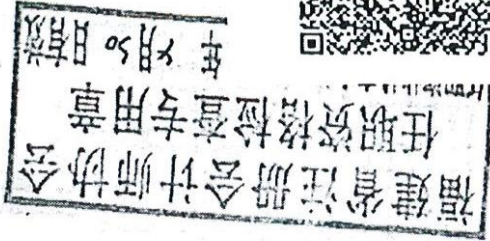 福建省注册会计师协会
任职资格检查专用章
年 月30日有效